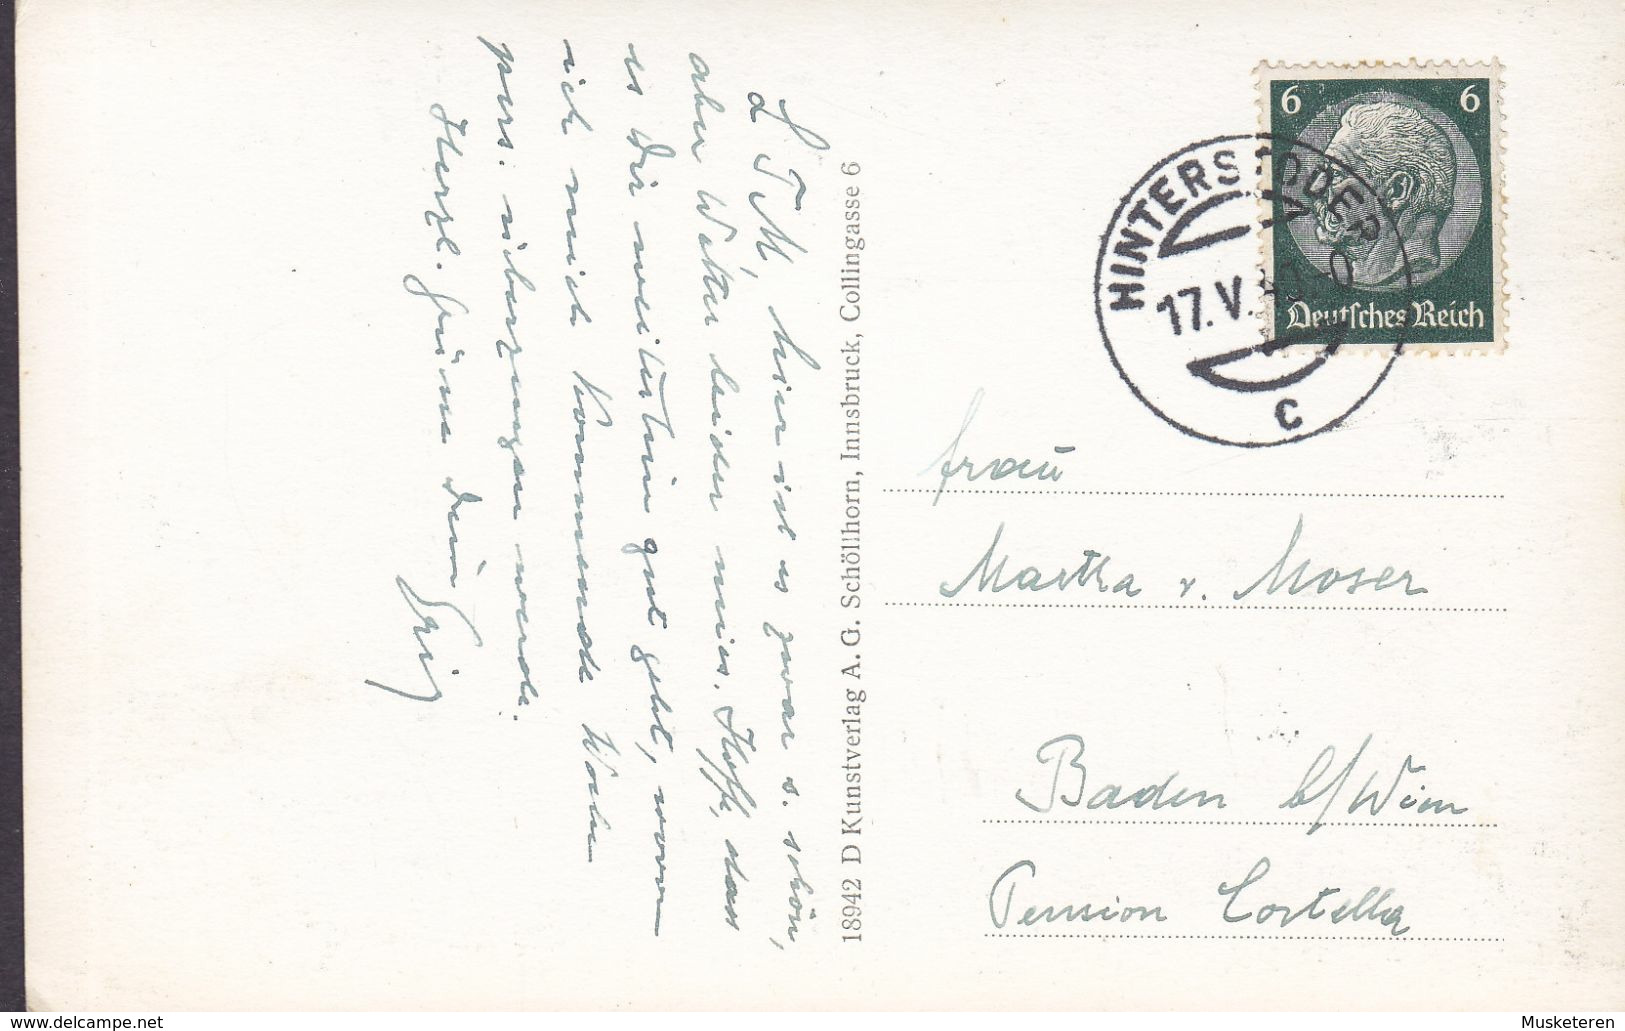 L TM, hier ist es zwar s. schön,
aber Wetter leider mies. Hoffe, dass
es Dir weiterhin gut geht, wovon
ich mich kommende Woche
pers. überzeugen werde.
Herzl. Grüsse Dein
18942 D Kunstverlag A. G. Schöllhorn, Innsbruck, Collingasse 6
6 6
Deutsches Reich
HINTERSTODER
17. V.
c
Frau
Martha v. Moser
Baden b/Wien
Pension Cortella
www.delcampe.net
Musketeren